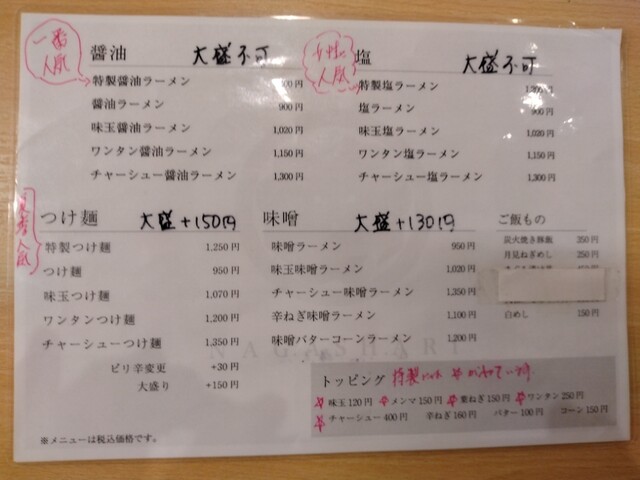 一番
人気
醤油 大盛不可
特製醤油ラーメン 00円
醤油ラーメン 900円
味玉醤油ラーメン 1,020円
ワンタン醤油ラーメン 1,150円
チャーシュー醤油ラーメン 1,300円
女性に
人気
塩 大盛不可
特製塩ラーメン 1,200円
塩ラーメン 900円
味玉塩ラーメン 1,020円
ワンタン塩ラーメン 1,150円
チャーシュー塩ラーメン 1,300円
人気
つけ麺 大盛+150円
特製つけ麺 1,250円
つけ麺 950円
味玉つけ麺 1,070円
ワンタンつけ麺 1,200円
チャーシューつけ麺 1,350円
ピリ辛変更 +30円
大盛り +150円
味噌 大盛+130円
味噌ラーメン 950円
味玉味噌ラーメン 1,020円
チャーシュー味噌ラーメン 1,350円
辛ねぎ味噌ラーメン 1,100円
味噌バターコーンラーメン 1,200円
ご飯もの
炭火焼き豚飯 350円
月見ねぎめし 250円
白めし 150円
トッピング 特製には が入っています
味玉 120円 メンマ 150円 葉ねぎ 150円 ワンタン 250円
チャーシュー 400円 辛ねぎ 160円 バター 100円 コーン 150円
※メニューは税込価格です。